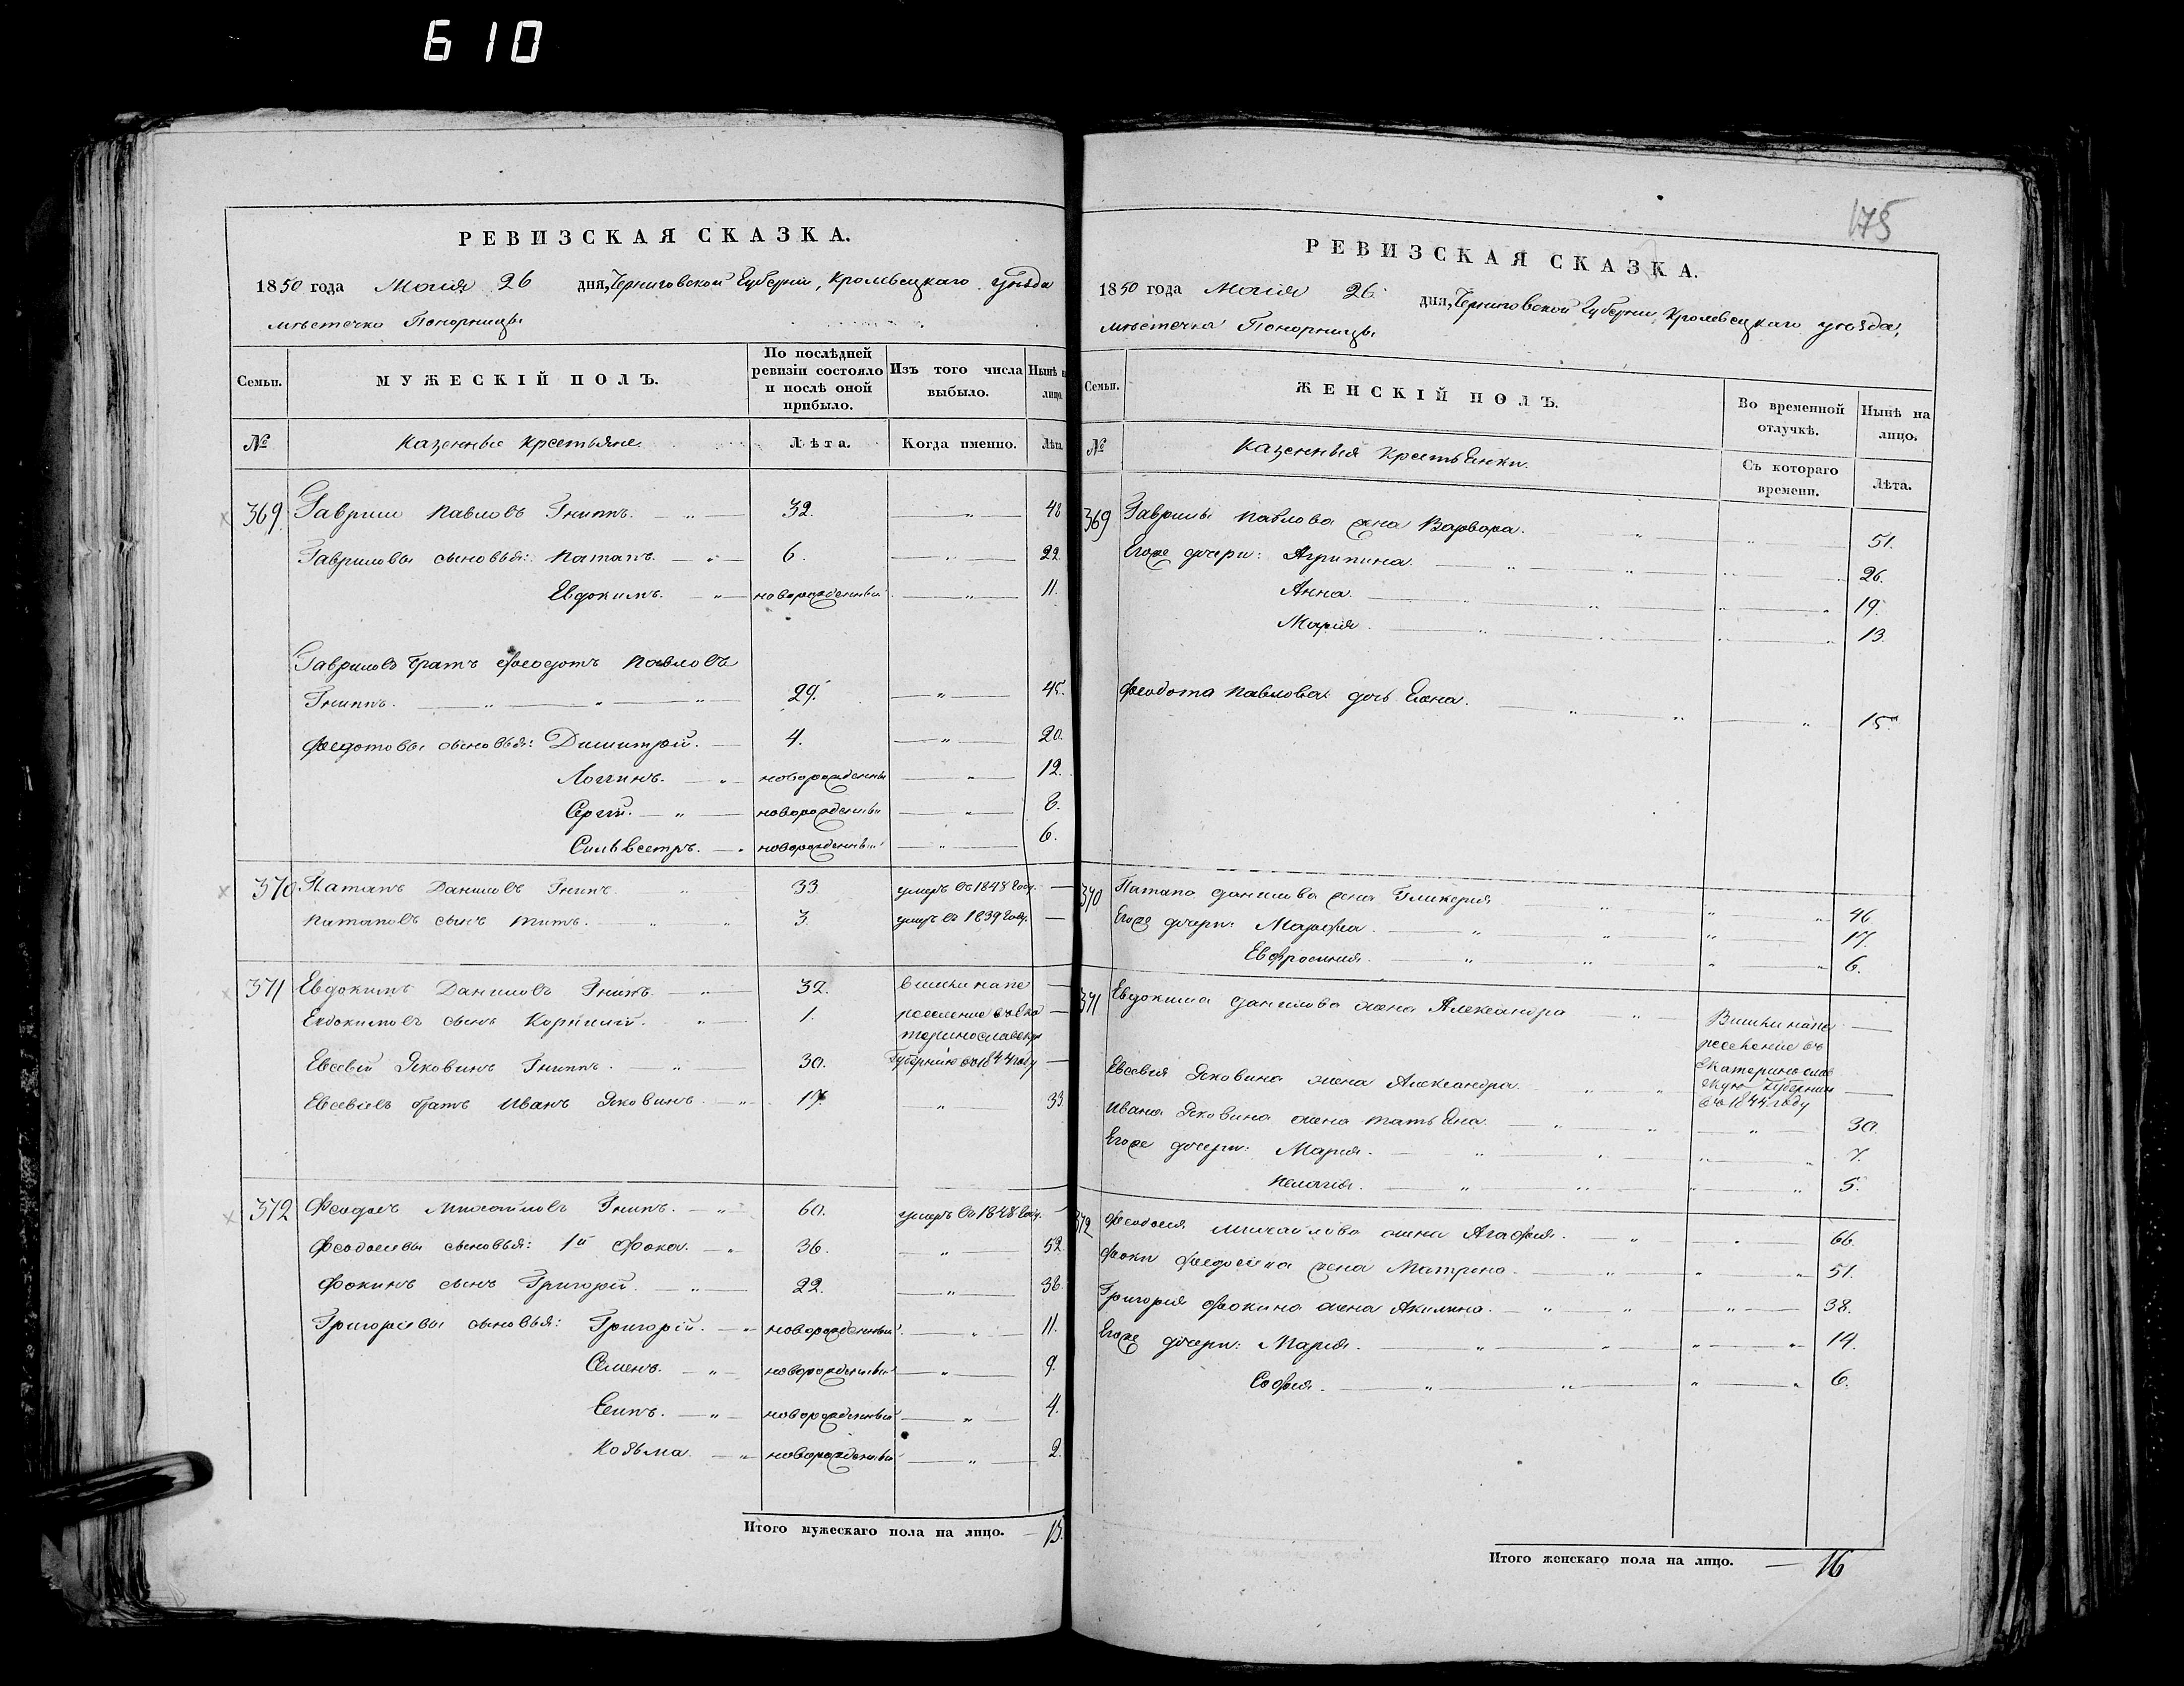 610
РЕВИЗСКАЯ СКАЗКА.
1850 года Маія 26 дня, Черниговской Губерніи, Кролевецкаго уѣзда
мѣстечка Понорницы
Семьи. МУЖЕСКІЙ ПОЛЪ. По послѣдней ревизіи состояло и послѣ оной прибыло. Изъ того числа выбыло. Нынѣ на лицо.
№ Казенные Крестьяне. Лѣта. Когда именно. Лѣта.
369 Гаврило Павловъ Гнипъ. 32. 48
Гавриловы сыновья: Патапъ. 6. 22
Евдокимъ. новорожденный 11.
Гавриловъ братъ Феодотъ Павловъ
Гнипъ. 29. 45.
Федотовы сыновья: Димитрій. 4. 20.
Логгинъ. новорожденный 12.
Сергій. новорожденный 8.
Сильвестръ. новорожденный 6.
370 Патапъ Даниловъ Гнипъ. 33 умеръ въ 1848 году. —
Патаповъ сынъ Титъ. 3. умеръ въ 1839 году. —
371 Евдокимъ Даниловъ Гнипъ. 32. вышли на пе —
Евдокимовъ сынъ Корнилій. 1. реселение въ Ека —
теринославску
Евсевій Яковинъ Гнипъ. 30. Губернію въ 1844 году —
Евсевіевъ братъ Иванъ Яковинъ. 17. 33
372 Феодосъ Михайловъ Гнипъ. 60. умеръ въ 1848 году. —
Феодосіевы сыновья: 1й Фока. 36. 52
Фокинъ сынъ Григорій. 22. 38.
Григоріевы сыновья: Григорій. новорожденный 11.
Семенъ. новорожденный 9.
Есипъ. новорожденный 4.
Козьма. новорожденный 2.
Итого мужескаго пола на лицо. — 15.
175
РЕВИЗСКАЯ СКАЗКА.
1850 года Маія 26 дня, Черниговской Губерніи, Кролевецкаго уѣзда,
мѣстечка Понорницы
Семьи. ЖЕНСКІЙ ПОЛЪ. Во временной отлучкѣ. Нынѣ на лицо.
№ Казенныя Крестьянки. Съ котораго времени. Лѣта.
369 Гаврилы Павлова жена Варвара. 51.
Егоже дочери: Агрипина. 26.
Анна. 19.
Марія. 13.
Феодота Павлова дочь Елена. 15.
370 Патапа Данилова жена Гликерія 46.
Егоже дочери: Марфа. 17.
Евфросинія. 6.
371 Евдокима Данилова жена Александра Вышли на пе —
реселение въ
Евсевія Яковина жена Александра. Екатеринослав
скую Губернію —
въ 1844 году
Ивана Яковина жена Татьяна. 30.
Егоже дочери: Марія. 7.
Пелагія. 5.
372 Феодосія Михайлова жена Агафія. 66.
Фоки Федосіева жена Матрена. 51.
Григорія Фокина жена Акилина. 38.
Егоже дочери: Марія. 14.
Софія. 6.
Итого женскаго пола на лицо. — 16